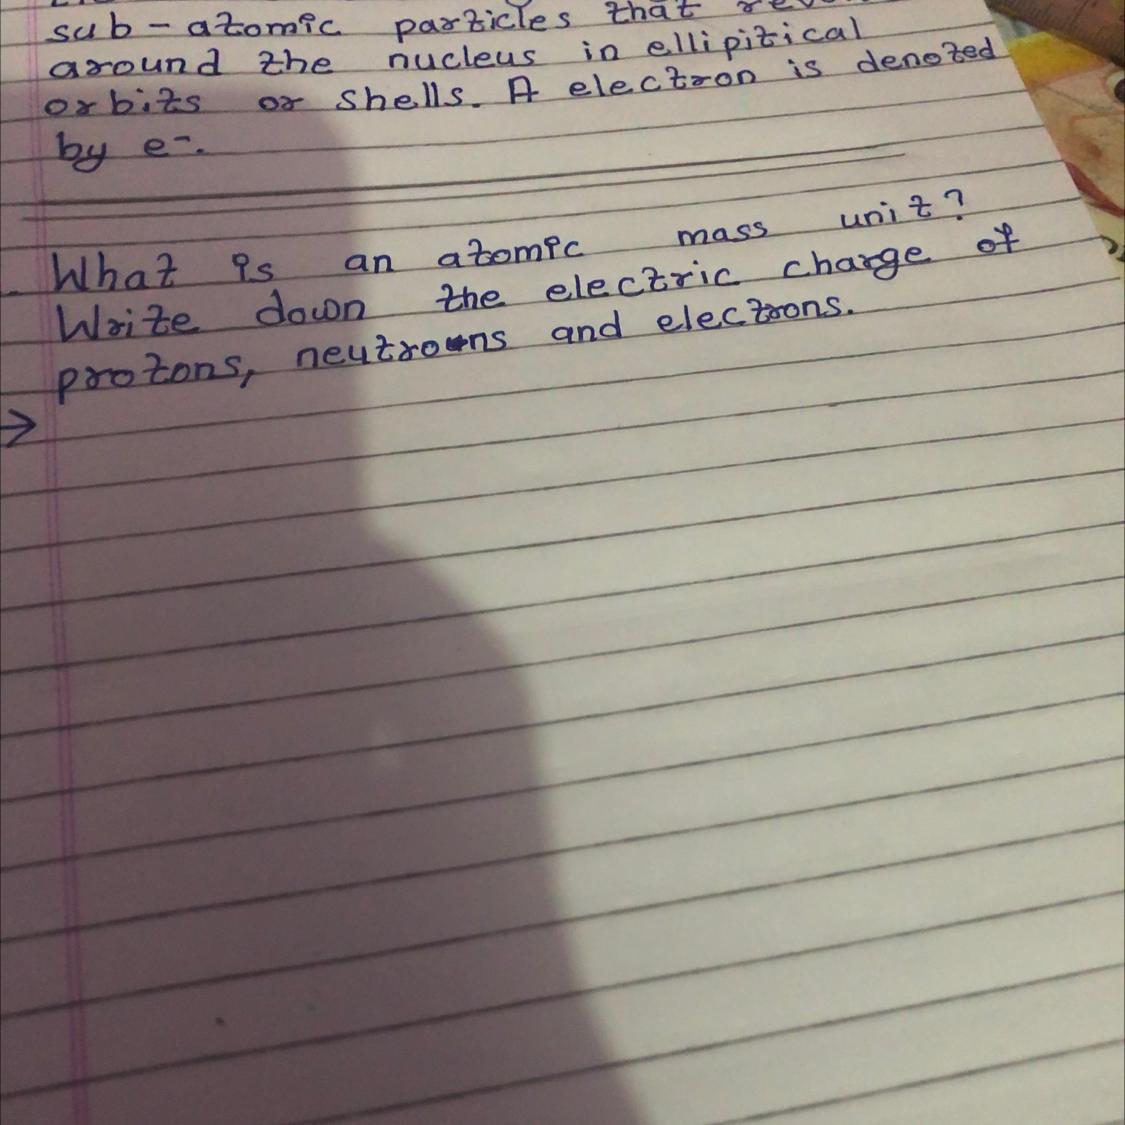 sub-atomic particles that
around the nucleus in ellipitical
orbits or shells. A electron is denoted
by e-.
What is an atomic mass unit?
Write down the electric charge of
protons, neutrons and electrons.
→